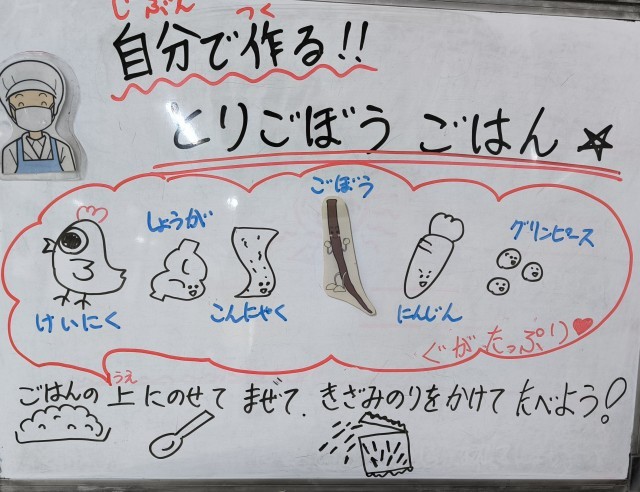 じぶん つく
自分で作る!!
とりごぼうごはん
ごぼう
しょうが
グリンピース
けいにく
こんにゃく
にんじん
ぐがたっぷり
うえ
ごはんの上にのせてまぜて、きざみのりをかけてたべよう!